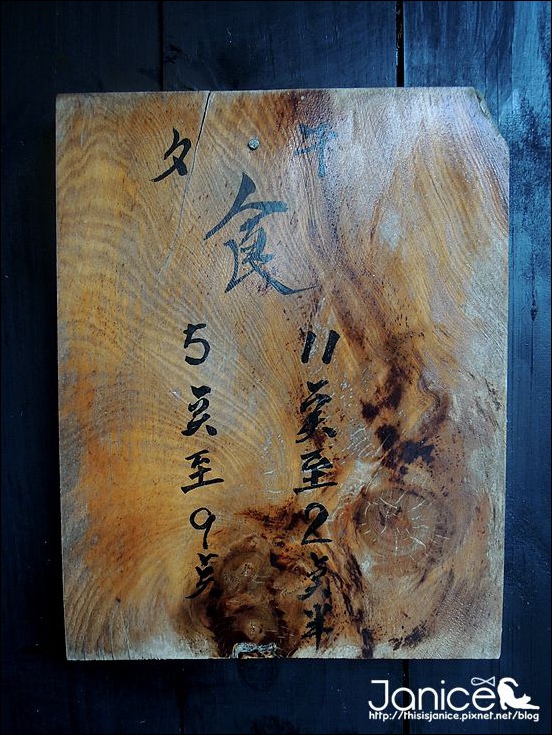 午
食
夕
11点至2点半
5点至9点
Janice
http://thisisjanice.pixnet.net/blog